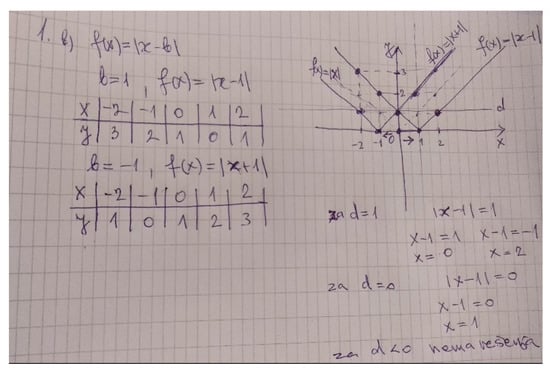 1. b) f(x)=|x-b|
b=1, f(x)=|x-1|
x | -2 | -1 | 0 | 1 | 2
y | 3 | 2 | 1 | 0 | 1
b=-1, f(x)=|x+1|
x | -2 | -1 | 0 | 1 | 2
y | 1 | 0 | 1 | 2 | 3
y
f(x)=|x+1|
f(x)=|x-1|
f(x)=|x|
3
2
d
-2 -1 0 1 2 x
za d=1 |x-1|=1
x-1=1 x-1=-1
x=0 x=2
za d=0 |x-1|=0
x-1=0
x=1
za d<0 nema rešenja